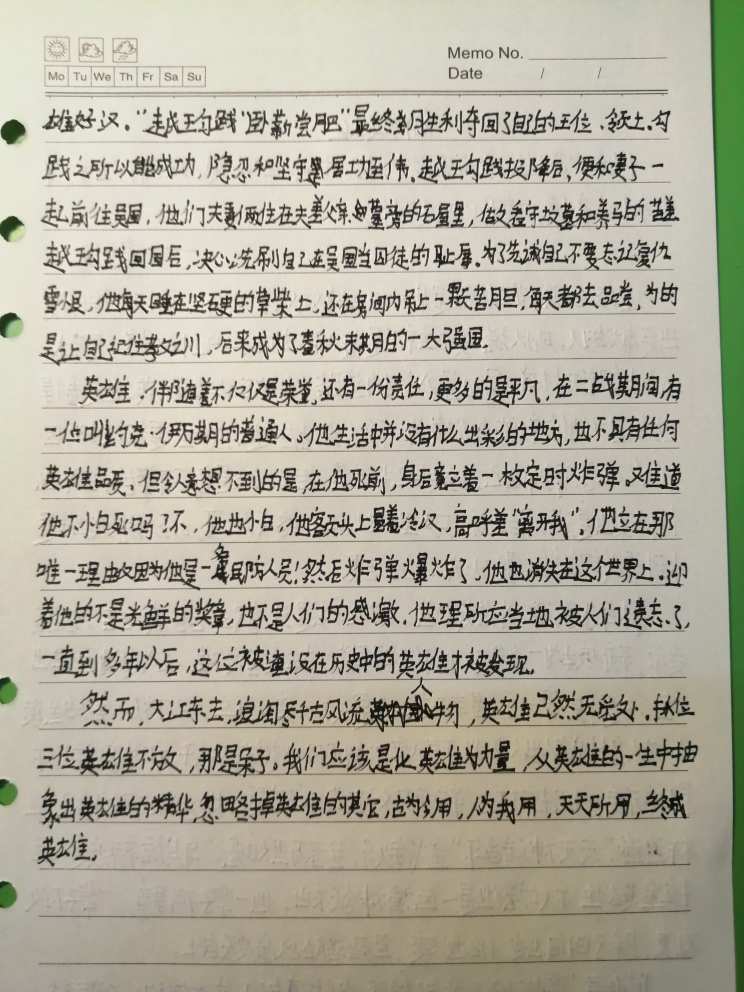 Memo No.
Mo Tu We Th Fr Sa Su
Date / /
雄好汉。"越王勾践"卧薪尝胆"最终利夺回了自己的王位、领土。勾
践之所以能成功,隐忍和坚守居功至伟。越王勾践投降后,便和妻子一
起前往吴国,他们夫妻俩住在夫差墓旁的石屋里,做看守坟墓和养马的苦差
越王勾践回国后,决心洗刷自己在吴国当囚徒的耻辱。为了告诫自己不要忘记复仇
雪恨,他每天睡在坚硬的草柴上,还在房间内吊上一颗苦月旦,每天都去品尝,为的
是让自己记住,后来成为了春秋末期的一大强国。
英雄,伴随着不仅仅是荣誉,还有一份责任,更多的是平凡,在二战期间,有
一位叫约克·伊万期的普通人。他生活中并没有什么出彩的地方,也不具有任何
英雄品质,但令人意想不到的是,在他死前,身后竟立着一枚定时炸弹。又谁道
他不小白死吗?不,他也小白,他额头上冒着冷汉,高呼着"离开我"。他立在那
唯一理由因为他是一名民防人员!然后炸弹爆炸了,他也消失在这个世界上。迎
着他的不是光鲜的奖章,也不是人们的感激,他理所应当地被人们遗忘了,
一直到多年以后,这位被遗没在历史中的英雄才被发现。
然而,大江东去,浪淘尽千古风流人物,英雄已然无觅处。执位
三位英雄不放,那是呆子。我们应该是化英雄为力量,从英雄的一生中抽
象出英雄的精华,忽略掉英雄的其它,古为今用,人为我用,天天所用,终成
英雄。